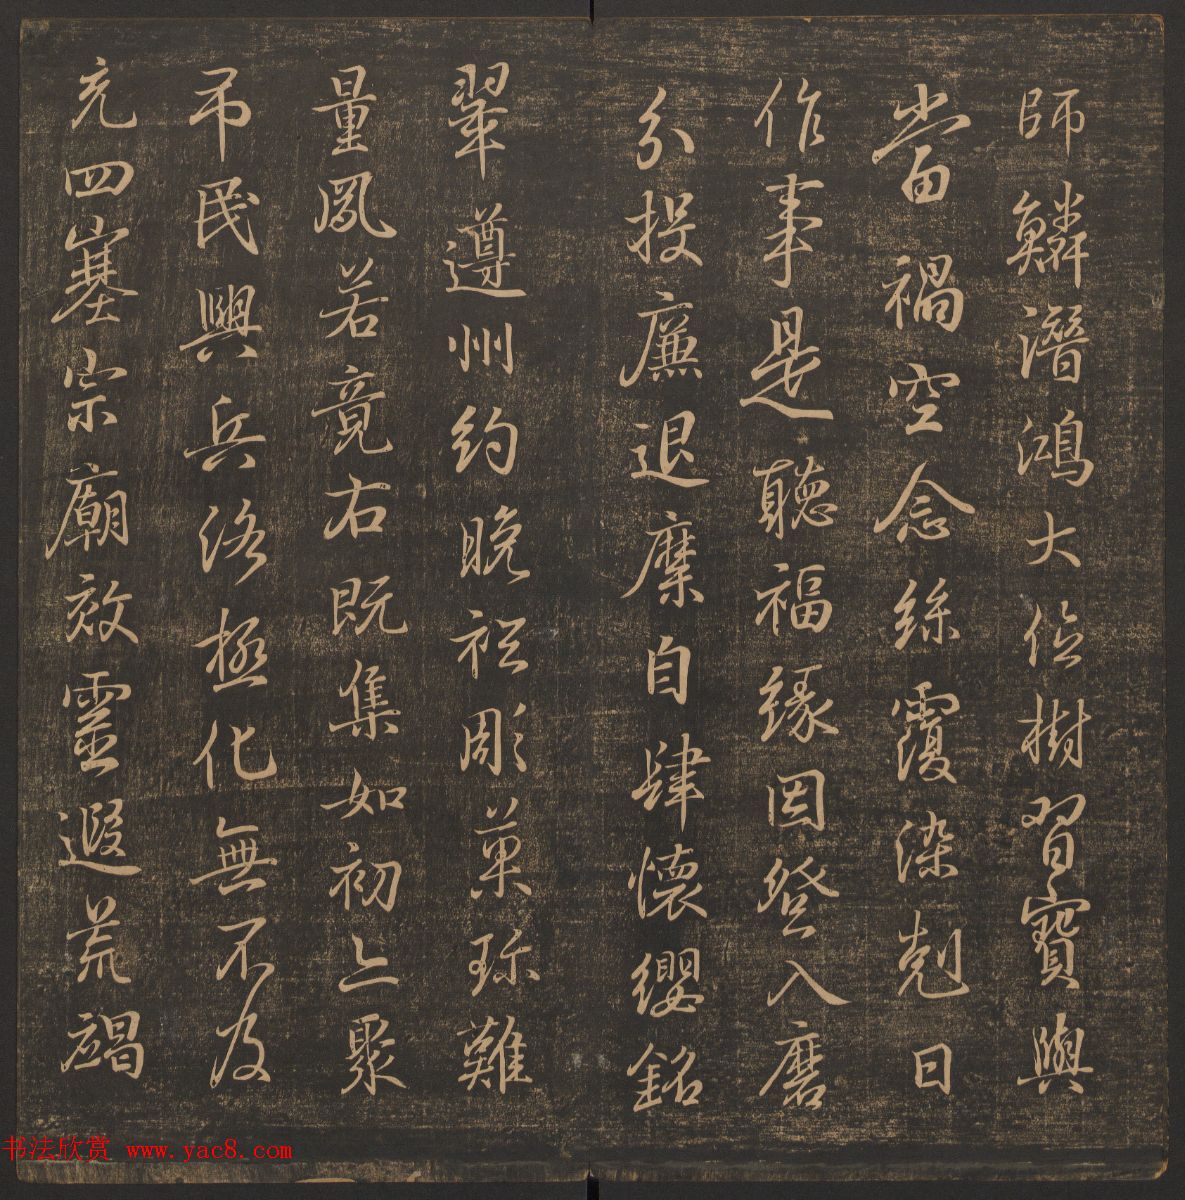 師鱗潛鴻大位樹習寶與
當禍空念絲覆染剋日
作事是聽福緣因登入磨
分投廉退糜自肆懷纓銘
翠遵州約晚祗彫菓珍難
量鳳若竟右既集如初上聚
吊民興兵洛極化無不及
充四塞宗廟效靈遐荒
书法欣赏 www.yac8.com